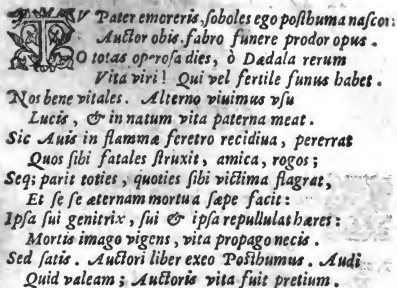 TV Pater emoreris, soboles ego posthuma nascor:
Auctor obis, fabro funere prodor opus.
O totas operosa dies, ò Dædala rerum
Vita viri! Qui vel fertile funus habet.
Nos bene vitales. Alterno viuimus vsu
Lucis, & in natum vita paterna meat.
Sic Auis in flammæ feretro recidiua, pererrat
Quos sibi fatales struxit, amica, rogos;
Seq; parit toties, quoties sibi victima flagrat,
Et se se æternam mortua sæpe facit:
Ipsa sui genitrix, sui & ipsa repullulat hæres:
Mortis imago vigens, vita propago necis.
Sed satis. Auctori liber exeo Posthumus. Audi
Quid valeam; Auctoris vita fuit pretium.